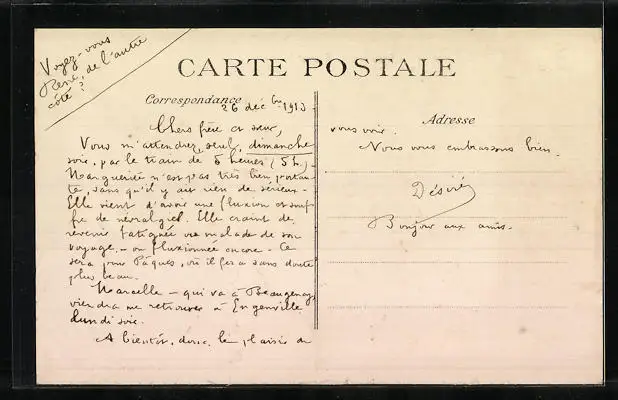 Voyez-vous
René, de l'autre
côté ?
CARTE POSTALE
Correspondance
26 déc bre 1913.
Chers frère et sœur,
Vous m'attendrez, seul, dimanche
soir, par le train de 5 heures (5 h.).
Marguerite n'est pas très bien portan-
te, sans qu'il y ait rien de sérieux.
Elle vient d'avoir une fluxion et souf-
fre de névralgies. Elle craint de
revenir fatiguée ou malade de son
voyage, - ou fluxionnée encore. Ce
sera pour Pâques, où il fera sans doute
plus beau.
Marcelle - qui va à Beaugency,
viendra me retrouver à Engenville
lundi soir.
A bientôt, donc, le plaisir de
Adresse
vous voir.
Nous vous embrassons bien.
Désiré
Bonjour aux amis.